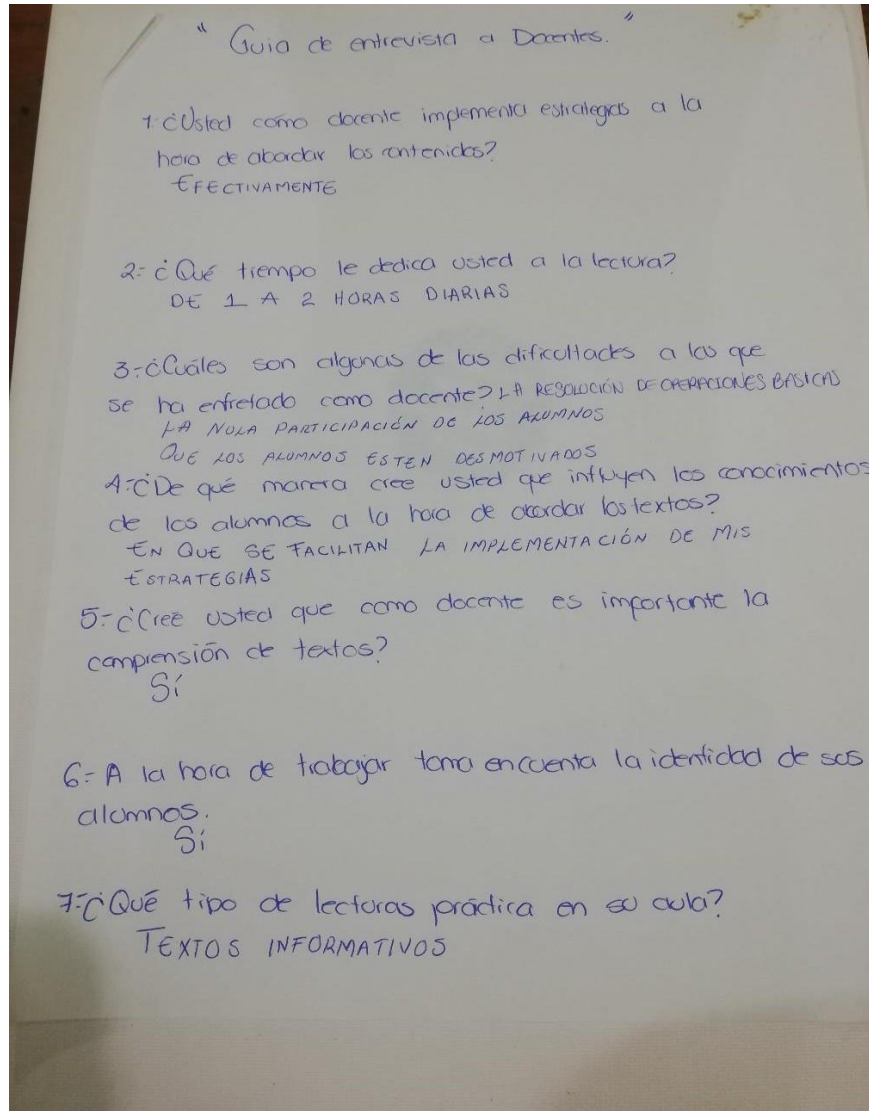 " Guia de entrevista a Docentes. "
1 ¿Usted como docente implementa estrategias a la
hora de abordar los contenidos?
EFECTIVAMENTE
2= ¿Qué tiempo le dedica usted a la lectura?
DE 1 A 2 HORAS DIARIAS
3=¿Cuáles son algunas de las dificultades a las que
se ha enfretado como docente? LA RESOLUCIÓN DE OPERACIONES BASICAS
LA NULA PARTICIPACIÓN DE LOS ALUMNOS
QUE LOS ALUMNOS ESTEN DESMOTIVADOS
4=¿De qué manera cree usted que influyen los conocimientos
de los alumnos a la hora de abordar los textos?
EN QUE SE FACILITAN LA IMPLEMENTACIÓN DE MIS
ESTRATEGIAS
5=¿Cree usted que como docente es importante la
comprensión de textos?
Sí
6= A la hora de trabajar toma encuenta la identidad de sus
alumnos.
Sí
7=¿Qué tipo de lecturas práctica en su aula?
TEXTOS INFORMATIVOS